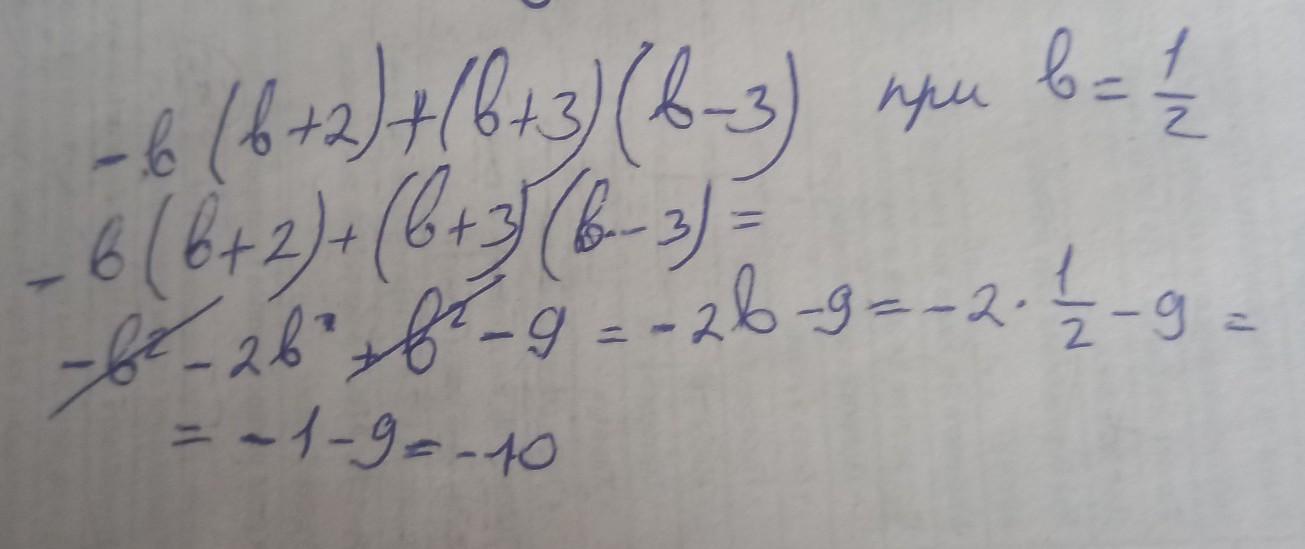 -b(b+2)+(b+3)(b-3) при b=1/2
-b(b+2)+(b+3)(b-3)=
-b²-2b+b²-9=-2b-9=-2·1/2-9=
=-1-9=-10